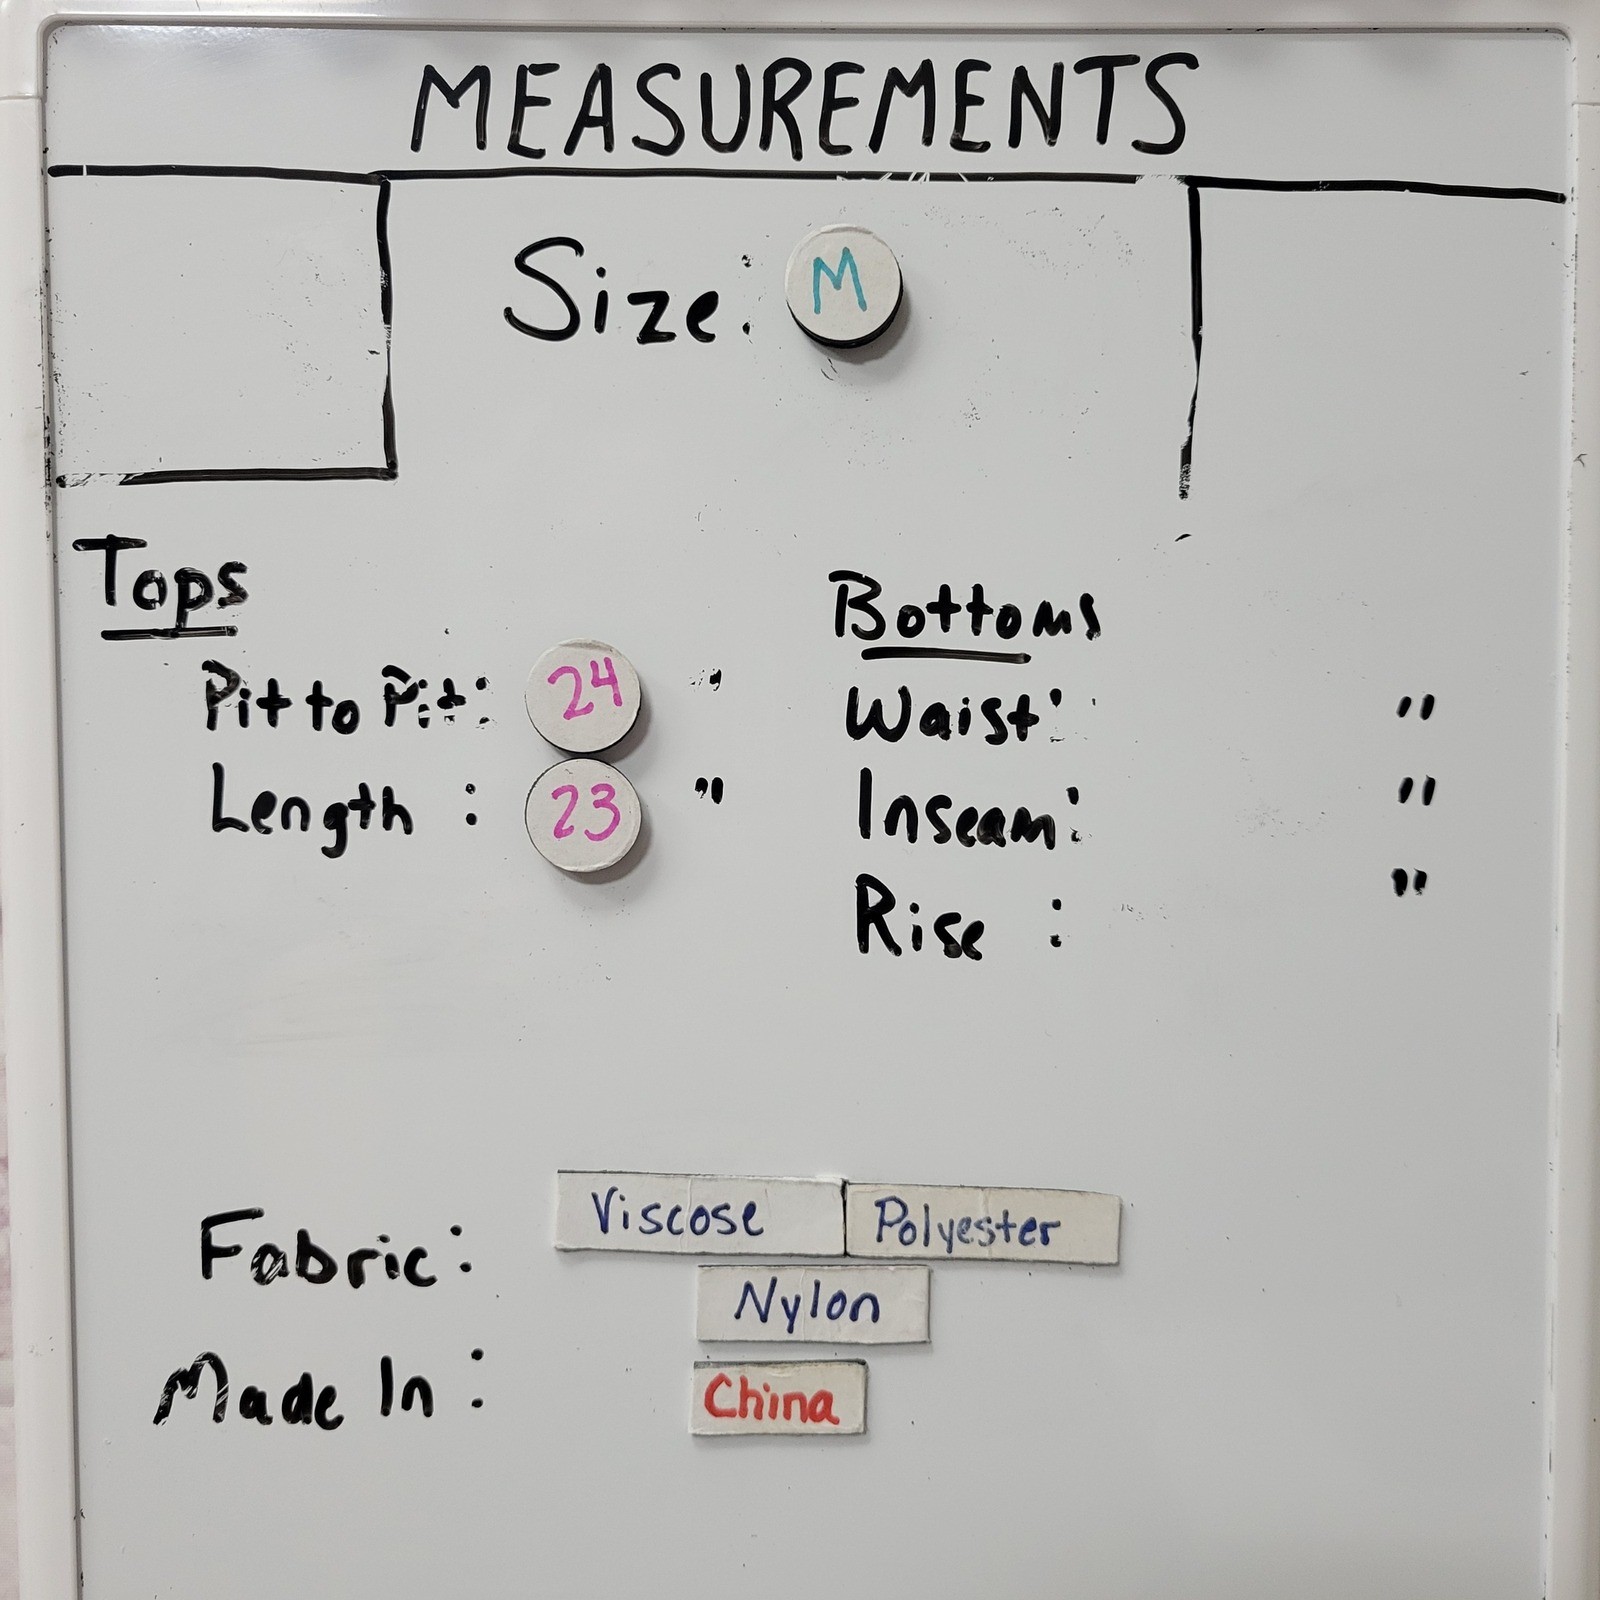 MEASUREMENTS
Size: M
Tops
Pit to Pit: 24 "
Length : 23 "
Bottoms
Waist: "
Inseam: "
Rise : "
Fabric: Viscose Polyester
Nylon
Made In: China